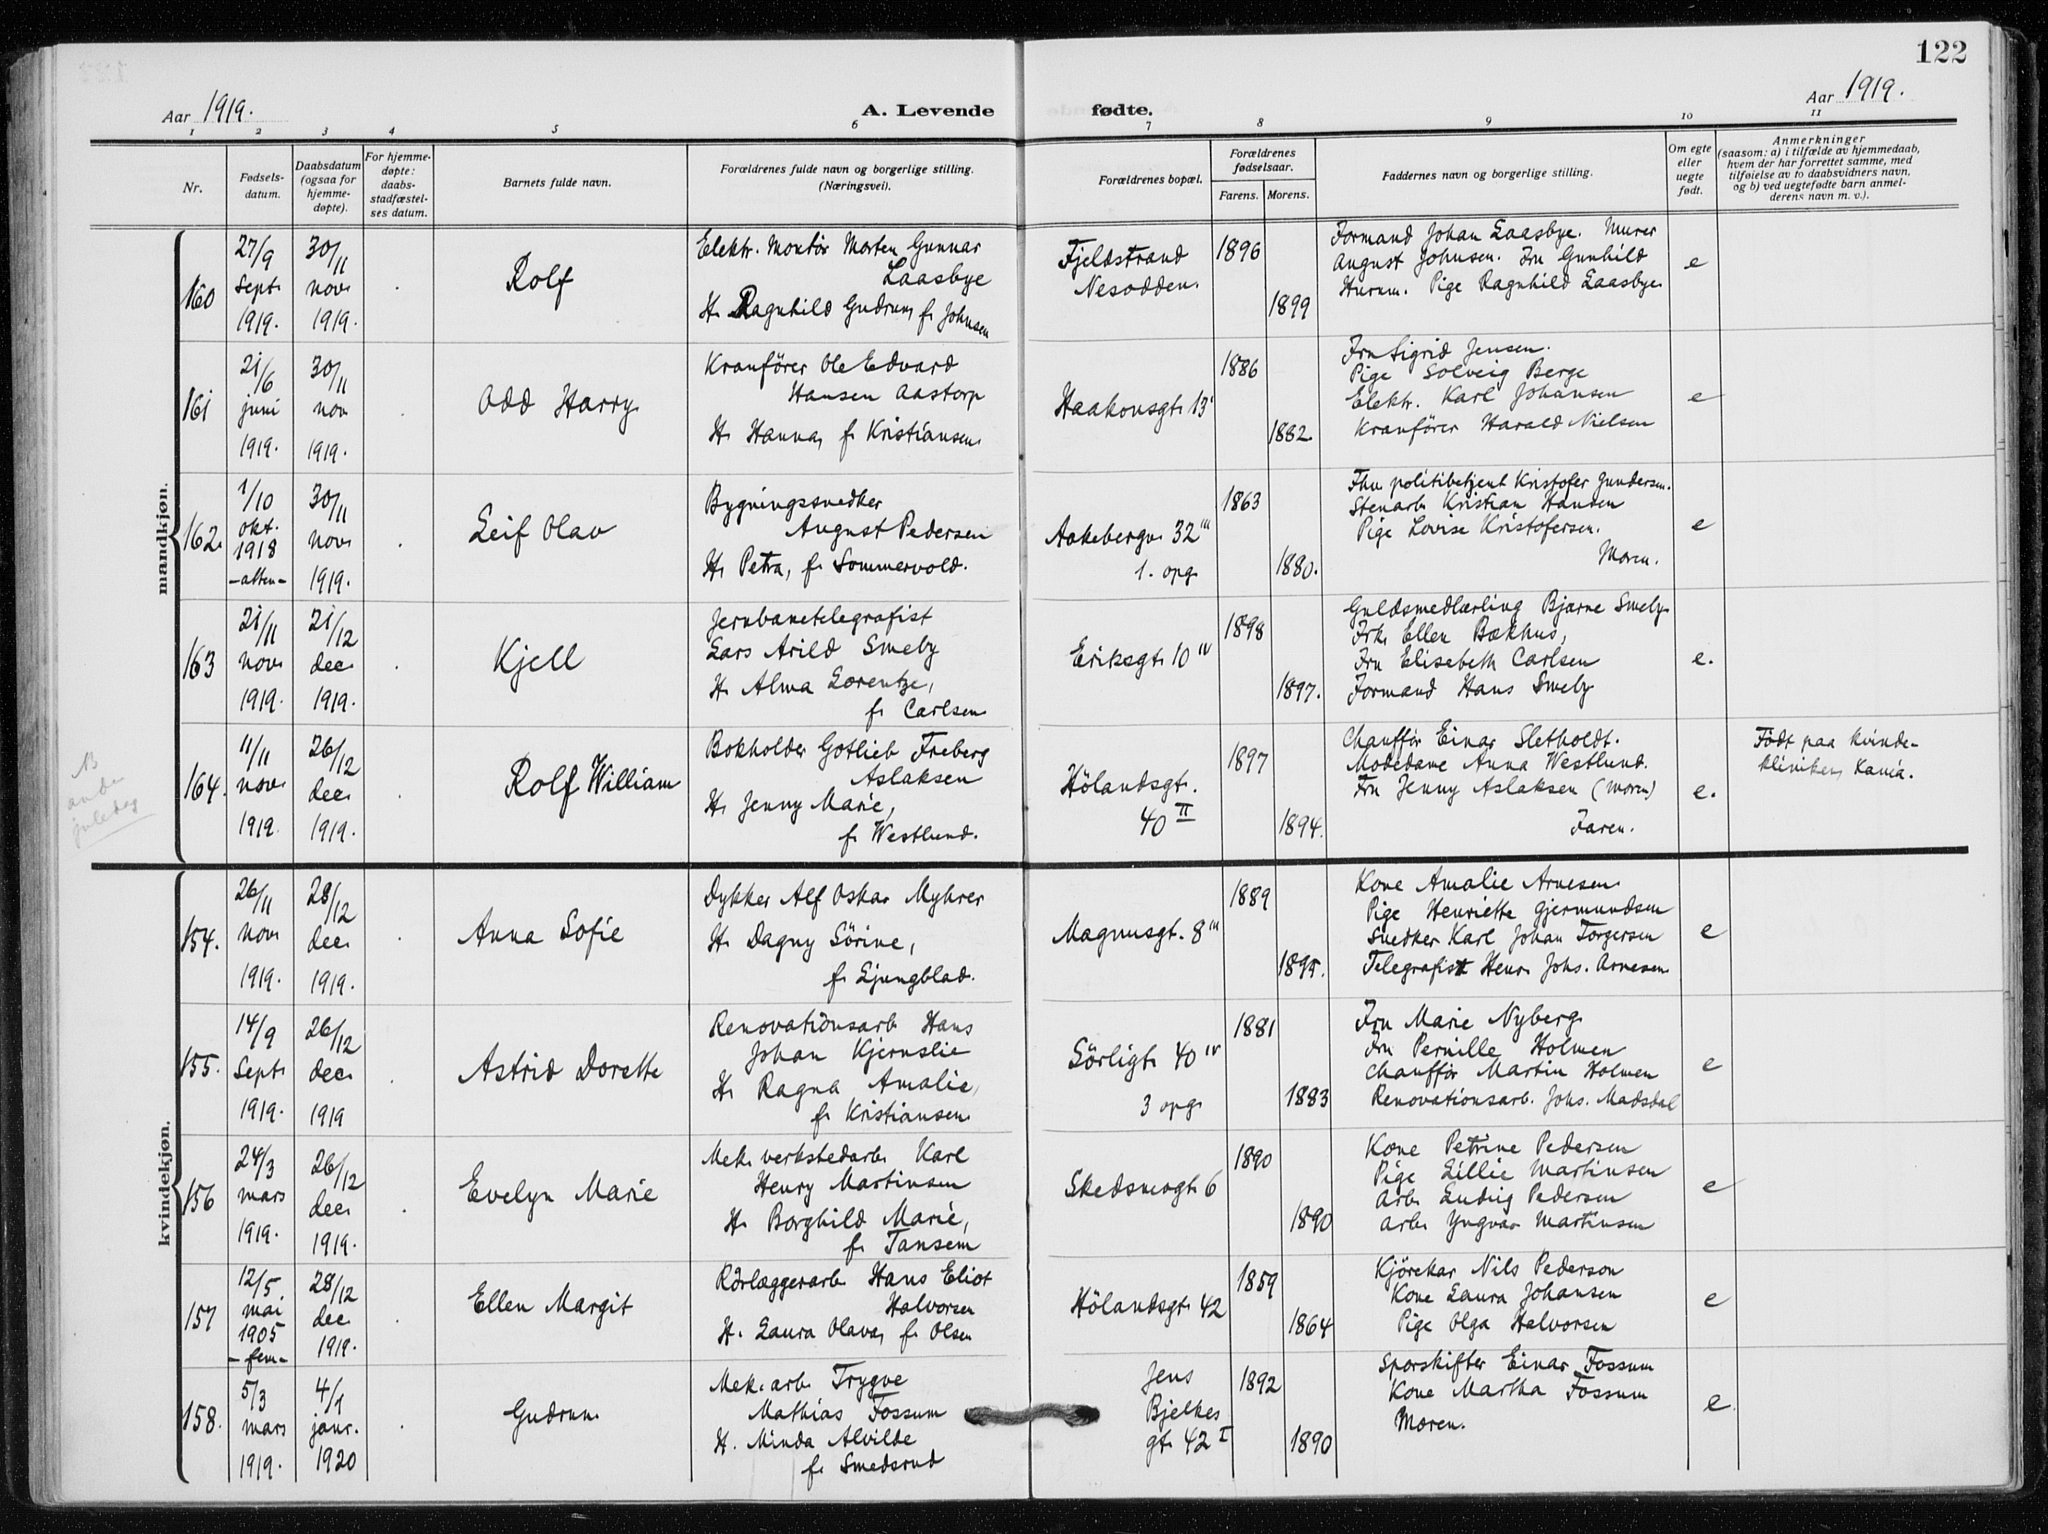 122
Aar 1919.
A. Levende fødte.
Aar 1919.
1 2 3 4 5 6 7 8 9 10 11
Nr.
Fødsels-
datum.
Daabsdatum
(ogsaa for
hjemme-
døpte).
For hjemme-
døpte:
daabs-
stadfæstel-
ses datum.
Barnets fulde navn.
Forældrenes fulde navn og borgerlige stilling.
(Næringsvei).
Forældrenes bopæl.
Forældrenes
fødselsaar.
Farens. Morens.
Faddernes navn og borgerlige stilling.
Om egte
eller
uegte
født.
Anmerkninger
(saasom: a) i tilfælde av hjemmedaab,
hvem der har forrettet samme, med
tilføielse av to daabsvidners navn,
og b) ved uegtefødte barn anmel-
derens navn m. v.).
mandkjøn.
160
27/9
Sept.
1919.
30/11
nov.
1919.
Rolf
Elektr. Montör Morten Gunnar
Laasbye
H. Ragnhild Gudrun, f. Johnsen
Fjeldstrand
Nesodden.
1896
1899
Formand Johan Laasbye. Murer
August Johnsen. Fru Gunhild
Hurum. Pige Ragnhild Laasbye.
e
161
21/6
juni
1919.
30/11
nov
1919.
Odd Harry
Kranförer Ole Edvard
Hansen Aastorp
H. Hanna, f. Kristiansen
Haakonsgt. 13
1886
1882.
Fru Sigrid Jensen.
Pige Solveig Berge
Elektr. Karl Johansen
Kranförer Harald Nielsen
e
162.
1/10
okt.
1918
-atten-
30/11
nov.
1919.
Leif Olav
Bygningssnedker
August Pedersen
H. Petra, f. Sommervold.
Aakebergv. 32 III
1. opg
1863
1880.
Fhv politibetjent Kristofer Gundersen.
Stenarb. Kristian Hansen
Pige Lovise Kristofersen.
Moren.
e
163
21/11
nov.
1919.
21/12
dec.
1919.
Kjell
Jernbanetelegrafist
Lars Arild Smeby
H. Alma Lorentze,
f. Carlsen
Eriksgt. 10 IV
1898
1897.
Guldsmedlærling Bjarne Smeby
Frk. Ellen Bækhus,
Fru Elisabeth Carlsen
Formand Hans Smeby
e.
NB
anden
juledag
164.
11/11
nov.
1919.
26/12
dec.
1919.
Rolf William
Bokholder Gotlieb Freberg
Aslaksen
H. Jenny Marie,
f. Westlund.
Hölandsgt.
40 II
1897
1894.
Chaufför Einar Sletholdt.
Modedame Anna Westlund.
Fru Jenny Aslaksen (moren)
Faren.
e.
Födt paa kvinde-
kliniken, Kania.
kvindekjøn.
154.
26/11
nov.
1919.
28/12
dec.
1919.
Anna Sofie
Dykker Alf Oskar Myhrer
H. Dagny Sörine,
f. Ljungblad.
Magnusgt. 8 III
1889
1895.
Kone Amalie Arnesen
Pige Henriette Gjermundsen
Snedker Karl Johan Torgersen
Telegrafist Henr. Johs. Arnesen
e
155.
14/9
Sept.
1919.
26/12
dec.
1919
Astrid Dorette
Renovationsarb. Hans
Johan Kjernslie
H. Ragna Amalie,
f. Kristiansen
Sörligt. 40 IV
3 opg.
1881
1883
Fru Marie Nyberg
Fru Pernille Holmen
Chaufför Martin Holmen
Renovationsarb. Johs. Madsdal
e
156
24/3
mars
1919.
26/12
dec.
1919.
Evelyn Marie
Mek. verkstedarb. Karl
Henry Martinsen
H. Borghild Marie,
f. Tansem
Skedsmogt. 6
1890
1890
Kone Petrine Pedersen
Pige Lillie Martinsen
Arb. Ludvig Pedersen
Arb. Yngvar Martinsen
e
157
12/5.
mai
1905
-fem-
28/12
dec.
1919.
Ellen Margit
Rörlæggerarb. Hans Eliot
Halvorsen
H. Laura Olava, f. Olsen
Hölandsgt. 42
1859
1864
Kjörekar Nils Pederson
Kone Laura Johansen
Pige Olga Halvorsen
e
158.
5/3
mars
1919.
4/1
janr.
1920
Gudrun
Mek. arb. Trygve
Mathias Fossum
H. Minda Alvilde
f. Smedsrud
Jens
Bjelkes
gt. 42 I
1892
1890
Sporskifter Einar Fossum
Kone Martha Fossum
Moren.
e.